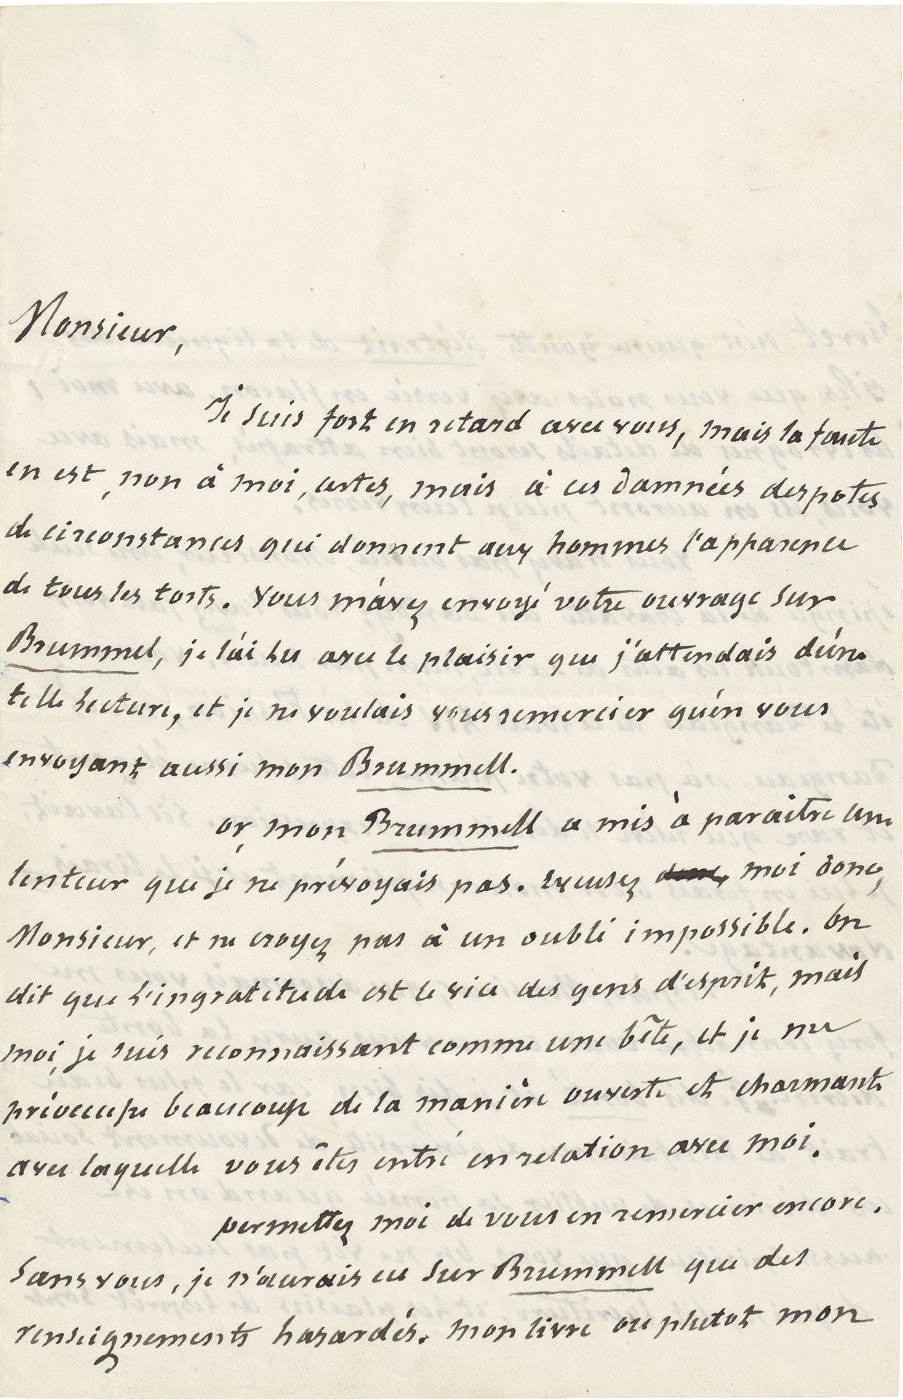 Monsieur,
Je suis fort en retard avec vous, mais la faute
en est, non à moi, certes, mais à ces damnées despotes
de circonstances qui donnent aux hommes l'apparence
de tous les torts. Vous m'avez envoyé votre ouvrage sur
Brummel, je l'ai lu avec le plaisir que j'attendais d'une
telle lecture, et je ne voulais vous remercier qu'en vous
envoyant aussi mon Brummell.
or, mon Brummell a mis à paraître une
lenteur que je ne prévoyais pas. Excusez donc, moi donc,
Monsieur, et ne croyez pas à un oubli impossible. On
dit que l'ingratitude est le vice des gens d'esprit, mais
moi, je suis reconnaissant comme une bête, et je me
préoccupe beaucoup de la manière ouverte et charmante
avec laquelle vous êtes entré en relation avec moi.
permettez moi de vous en remercier encore.
Sans vous, je n'aurais eu sur Brummell que des
renseignements hasardés. Mon livre ou plutot mon